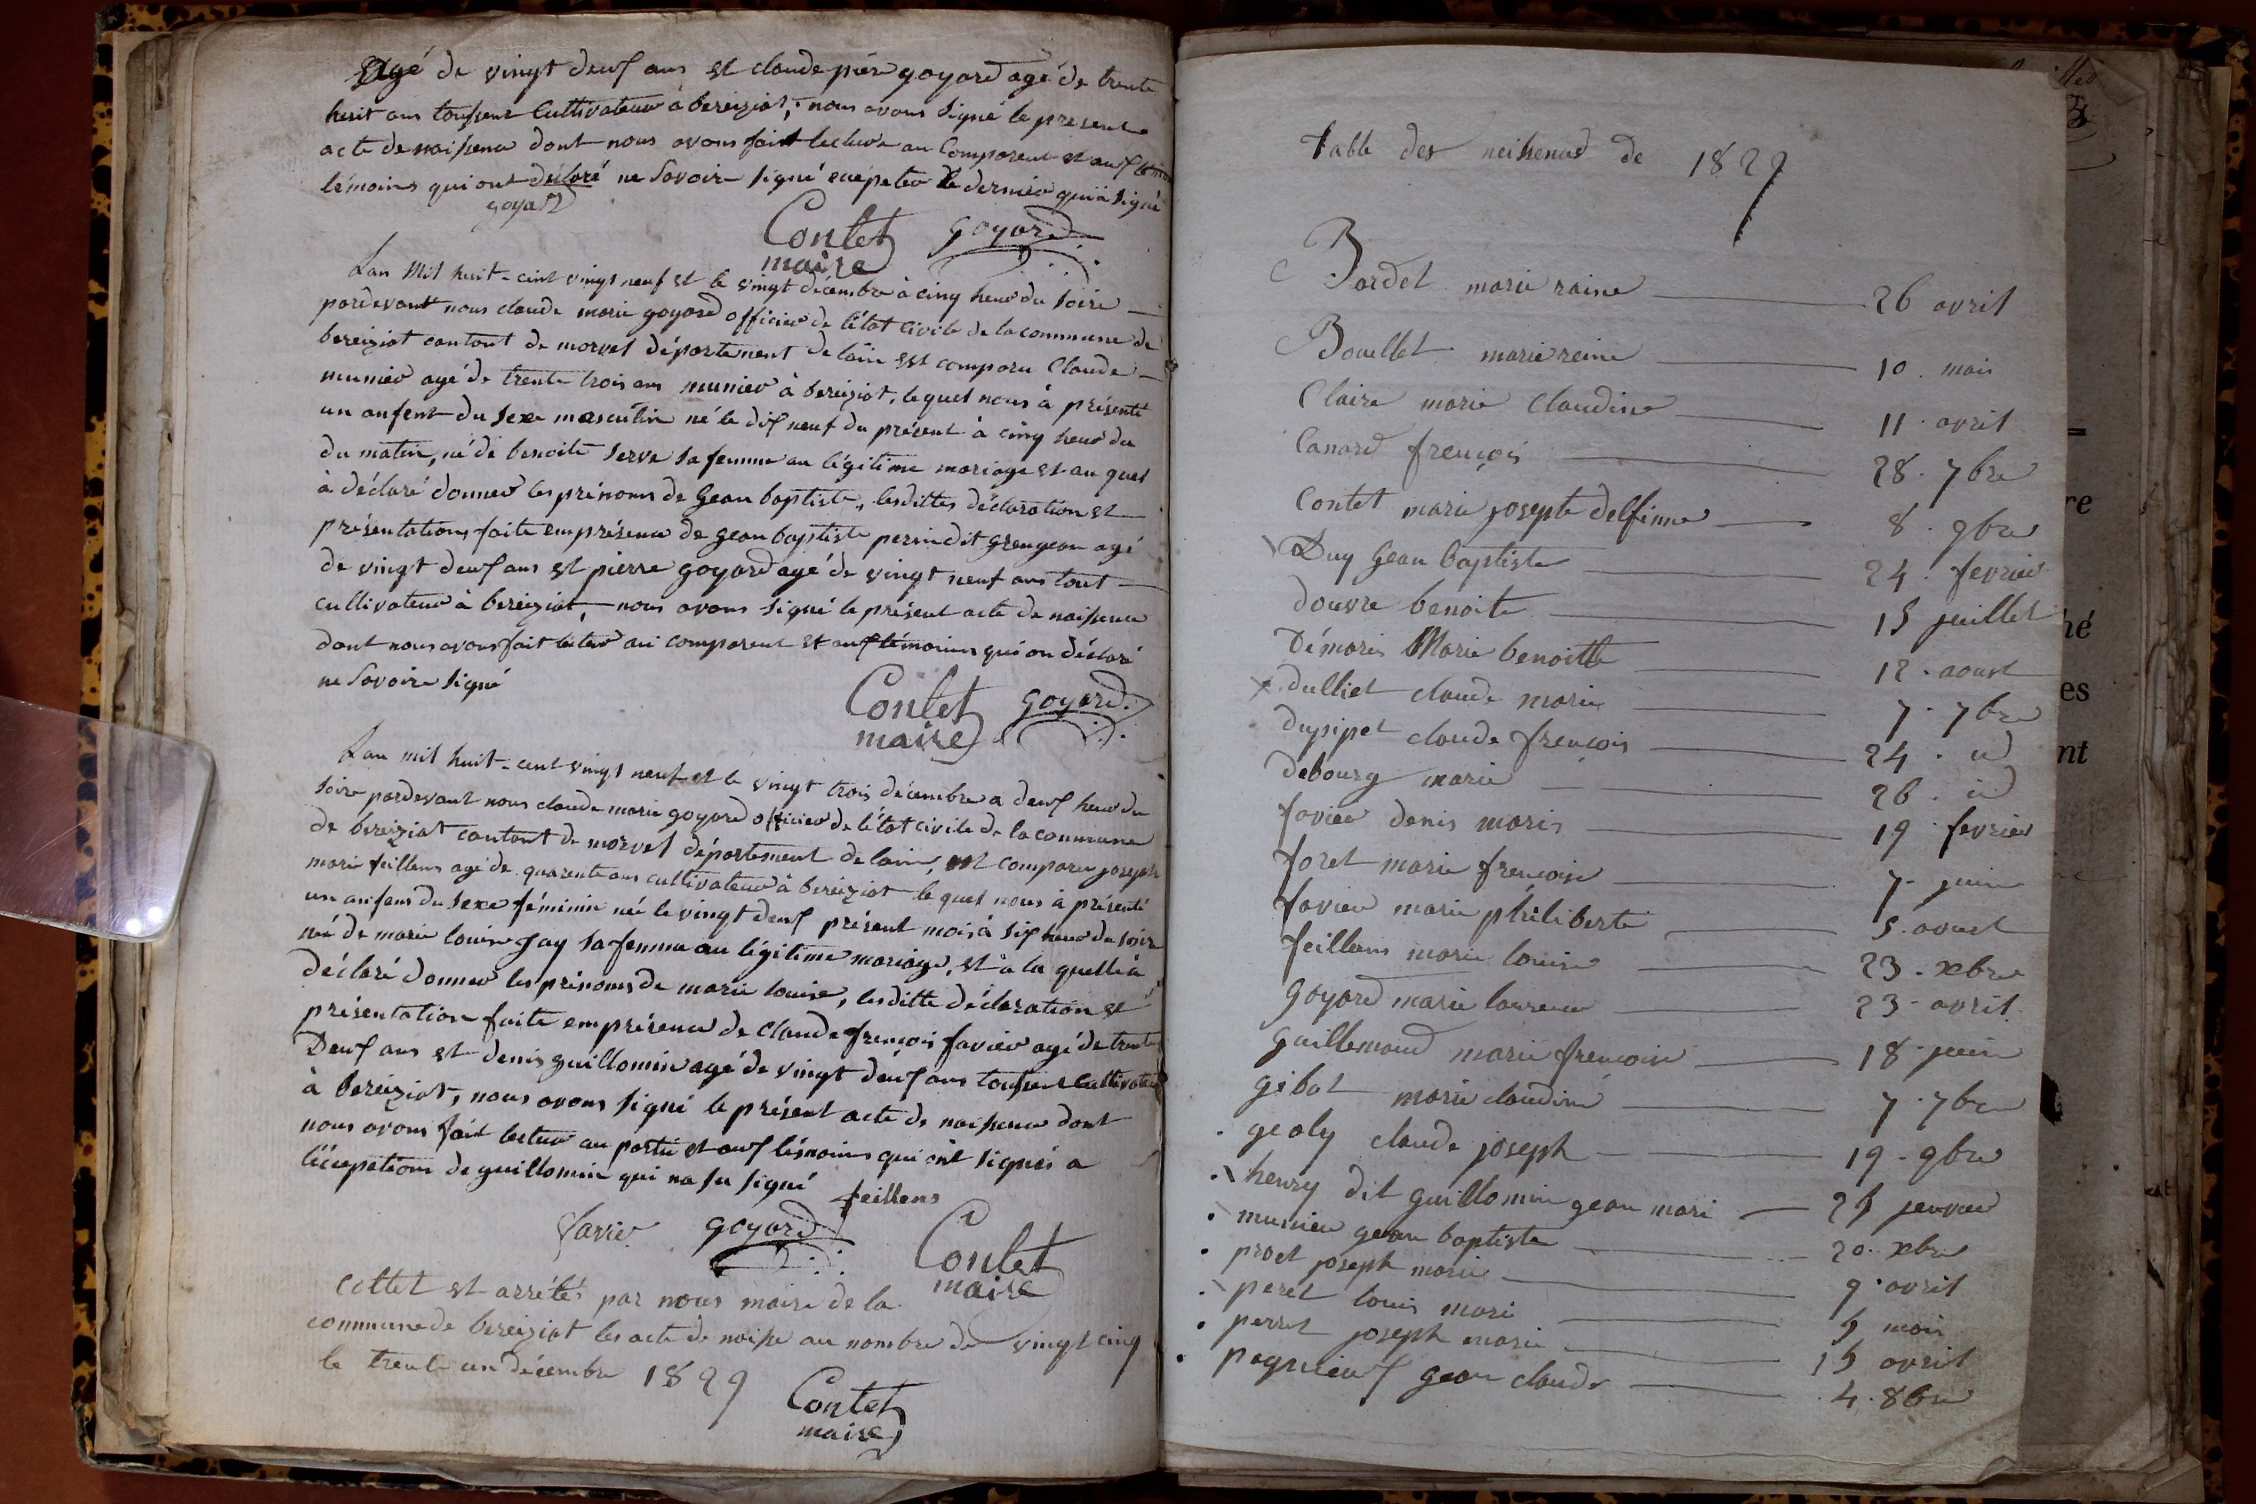 Agé de vingt deuf ans et claude pière goyard agé de trente
huit ans toussent Cultivateur à bereiziat, nous avons signé le present
acte de naissence dont nous avons fait lecture au Comparent et auf témoins
témoins qui ont déclaré ne savoir signé exepeter le dernier qui à signé
goyard
Contet goyard
maire
Lan Mil huit-cent vingt neuf et le vingt décembre à cinq heur du soire
pardevant nous claude marie goyard officier de l'état civile de la commune de
bereiziat cantont de morvel département de lain est comparu Claude
munier agé de trente trois ans munier à bereiziat, lequel nous à présenté
un anfent du sexe masculin né le dif neuf du présent à cinq heur du
du matin, né de benoite serve sa femme au légitime mariage et au quel
à déclaré donner les prénoms de Gean baptiste, lesdittes déclaration et
présentations faite emprésence de gean baptiste perrin dit grengean agé
de vingt deuf ans et pierre goyard agé de vingt neuf ans tout
cultivateur à bereiziat, nous avons signé le présent acte de naissence
dont nous avons fait lectur au comparent et auf témoins qui on déclaré
ne savoire signé
Contet goyard
maire
Lan mil huit-cent vingt neuf et le vingt trois décembre a deuf heur du
soire pardevant nous claude marie goyard officier de l'état civile de la commune
de bereiziat cantont de morvel département de lain, est comparu joseph
marie feillens agé de quarente ans cultivateur à bereiziat le quel nous à présenté
un anfent du sexe féminin née le vingt deuf présent mois à sif heur du soire
né de marie louise gay sa femme au légitime mariage, et à la quelle à
déclaré donner les prénoms de marie louise, lesditte déclaration et
présentation faite emprésence de claude frençois favier agé de trente
Deuf ans et denis guillomin agé de vingt deuf ans toussent cultivateur
à bereiziat, nous avons signé le présent acte de naissence dont
nous avons fait lectur au partie et auf témoins qui ont signés a
l'écxeptions de guillomin qui na su signé
feillens
favier goyard Contet
maire
Cottet et arrétés par nous maire de la
commune de bereiziat les acte de naisse au nombre de vingt cinq
le trente un décembre 1829
Contet
maire
Table des neissences de 1829
Bordet marie raine 26 avril
Bouillet marie reine 10 . mai
Claire marie Claudine 11 . avril
Canard frençois 28 . 7bre
Contet marie josephte delfinne 8 . 9bre
Duy Gean baptiste 24 . fevrier
Douvre benoite 15 juillet
Démaris Marie benoitte 12 . aoust
dulliet claude marie 7 . 7bre
dupipet claude frençois 24 . id
debourg marie 26 . id
favier denis marie 19 fevrier
foret marie frencoise 7 juin
favier marie philiberte 5 . aoust
feillens marie louise 23 . xbre
goyard marie laurence 23 . avril
guillemaud marie frencoise 18 . juin
gibot marie claudine 7 . 7bre
geoly claude joseph 19 . 9bre
henry dit guillomin gean mari 25 jenvier
munier gean baptiste 20 . xbre
proet joseph marie 9 . avril
peret louis mari 5 mai
perret joseph marie 15 avril
pagnieuf gean claude 4 . 8bre